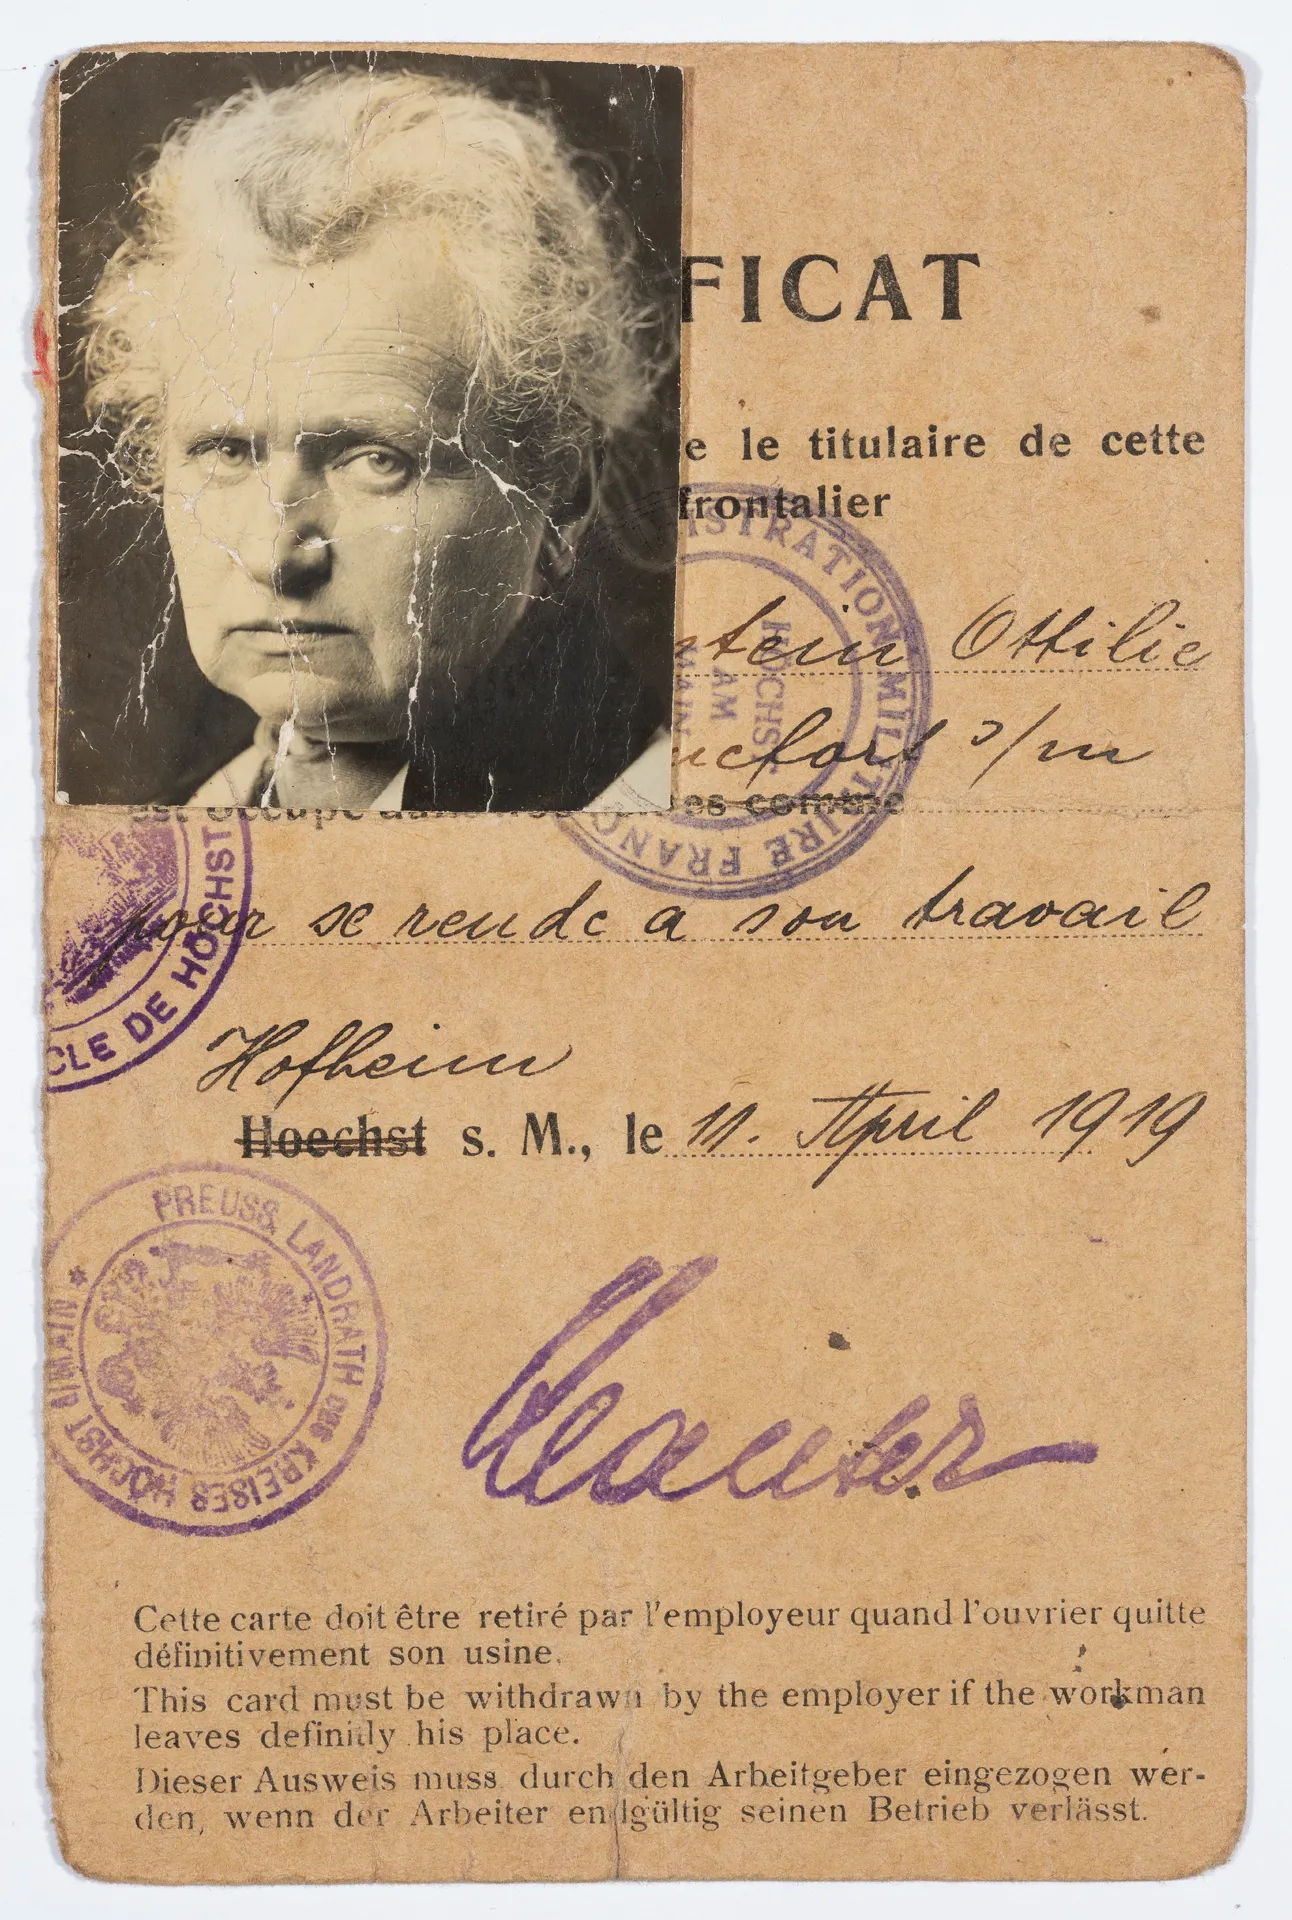 FICAT
e le titulaire de cette
frontalier
stein Ottilie
ucfort s/m
est occupé dans nos usines comme
pour se rende a son travail
Hofheim
Hoechst s. M., le 11. April 1919
ISTRATION MILITAIRE FRANÇ
HÖCHST
AM
MAIN
CLE DE HÖCHST
PREUSS. LANDRATH DES KREISES HÖCHST A/MAIN
Cette carte doit être retiré par l'employeur quand l'ouvrier quitte
définitivement son usine.
This card must be withdrawn by the employer if the workman
leaves definitly his place.
Dieser Ausweis muss durch den Arbeitgeber eingezogen wer-
den, wenn der Arbeiter endgültig seinen Betrieb verlässt.